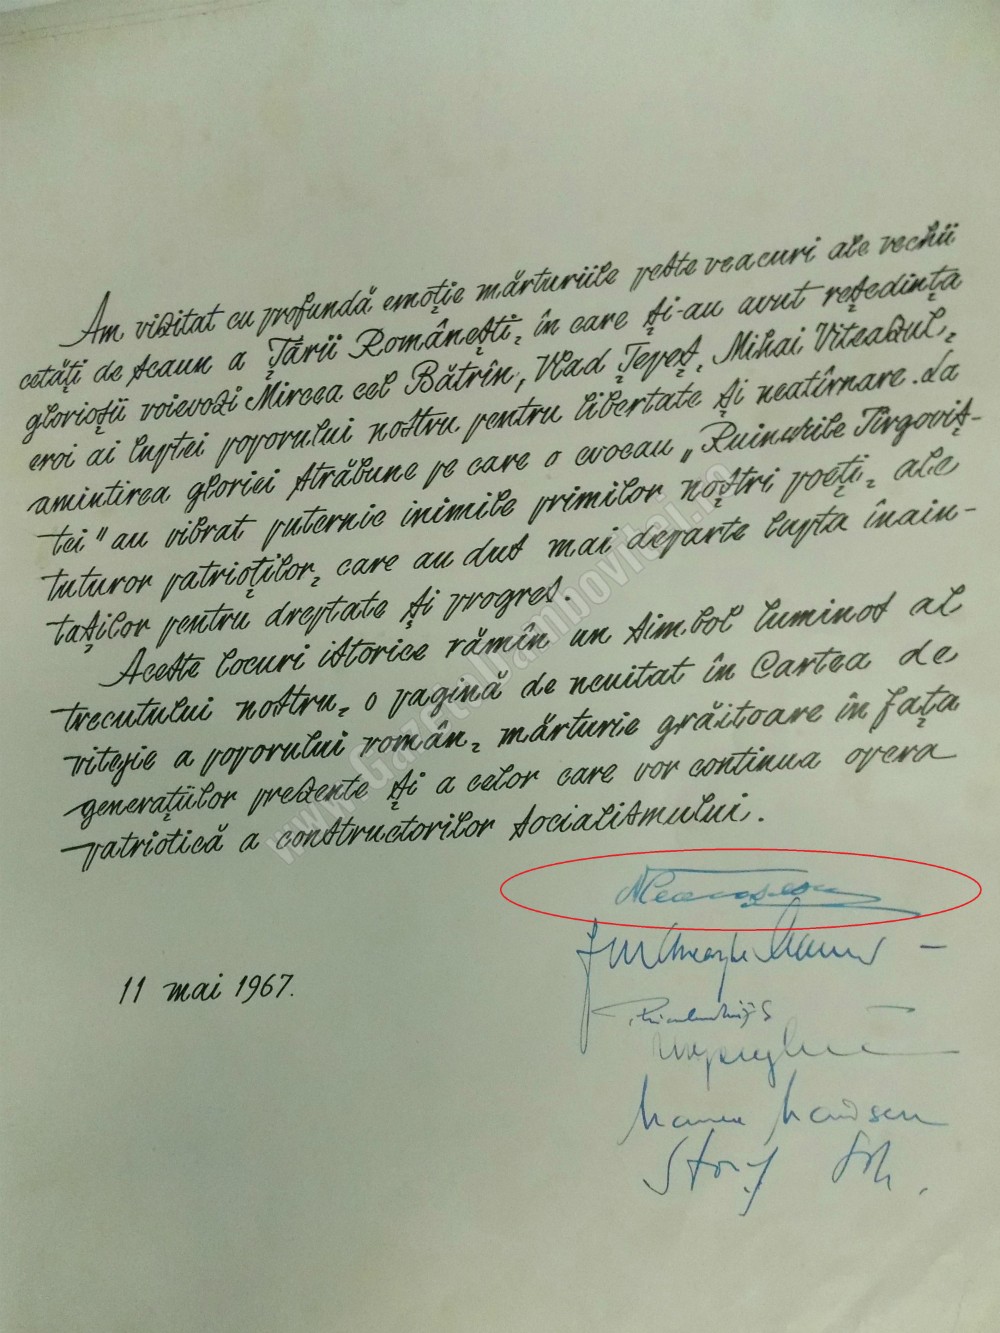 Am vizitat cu profundă emoție mărturiile peste veacuri ale vechii
cetăți de scaun a Țării Românești, în care și-au avut reședința
glorioșii voievozi Mircea cel Bătrîn, Vlad Țepeș, Mihai Viteazul,
eroi ai luptei poporului nostru pentru libertate și neatîrnare. La
amintirea gloriei străbune pe care o evocau „Ruinurile Tîrgoviș-
tei" au vibrat puternic inimile primilor noștri poeți, ale
tuturor patrioților, care au dus mai departe lupta înain-
tașilor pentru dreptate și progres.
Aceste locuri istorice rămîn un simbol luminos al
trecutului nostru, o pagină de neuitat în Cartea de
vitejie a poporului român, mărturie grăitoare în fața
generațiilor prezente și a celor care vor continua opera
patriotică a constructorilor socialismului.
NCeaușescu
11 mai 1967.
www.GazetaDambovitei.ro